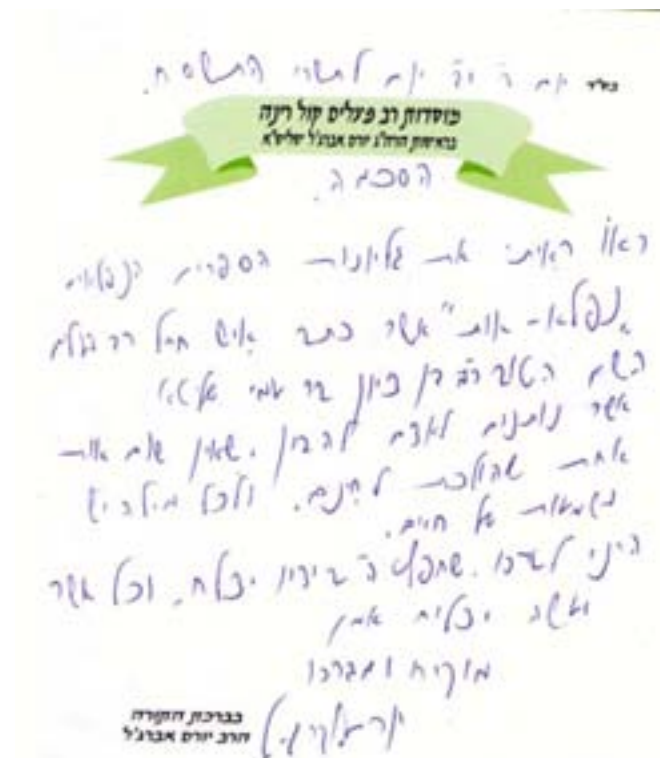 בס"ד יום ו' י"ד יום לתשרי התשס"ח.
מוסדות רב פעלים קול רינה
בראשות הרה"ג יורם אברג'ל שליט"א
הסכמה.
ראו ראיתי את גליונות הספרים הנפלאים
"נפלא- אות" אשר כתב איש חיל רב פעלים
השם הטוב רב בן ציון בר עמי
אשר נותנים לאדם להבין, שאין שום אות
אחת שהולכת לחינם. ולכל מילה יש
משמעות של חיים.
הנני לברכו, שחפץ ה' בידיו יצלח, וכל אשר
יעשה יצליח אמן
מוקיר ומברכו
בברכת התורה
הרב יורם אברג'ל